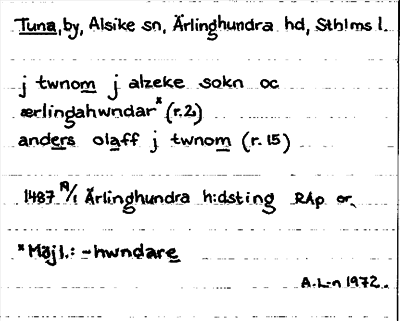 Tuna, by, Alsike sn, Ärlinghundra hd, Sthlms l.
j twnom j alzeke sokn oc
ærlingahwndar* (r.2)
anders olaff j twnom (r. 15)
1487 19/1 Ärlinghundra hdsting RAp or.
*Möjl.: -hwndare
A.L-n 1972.